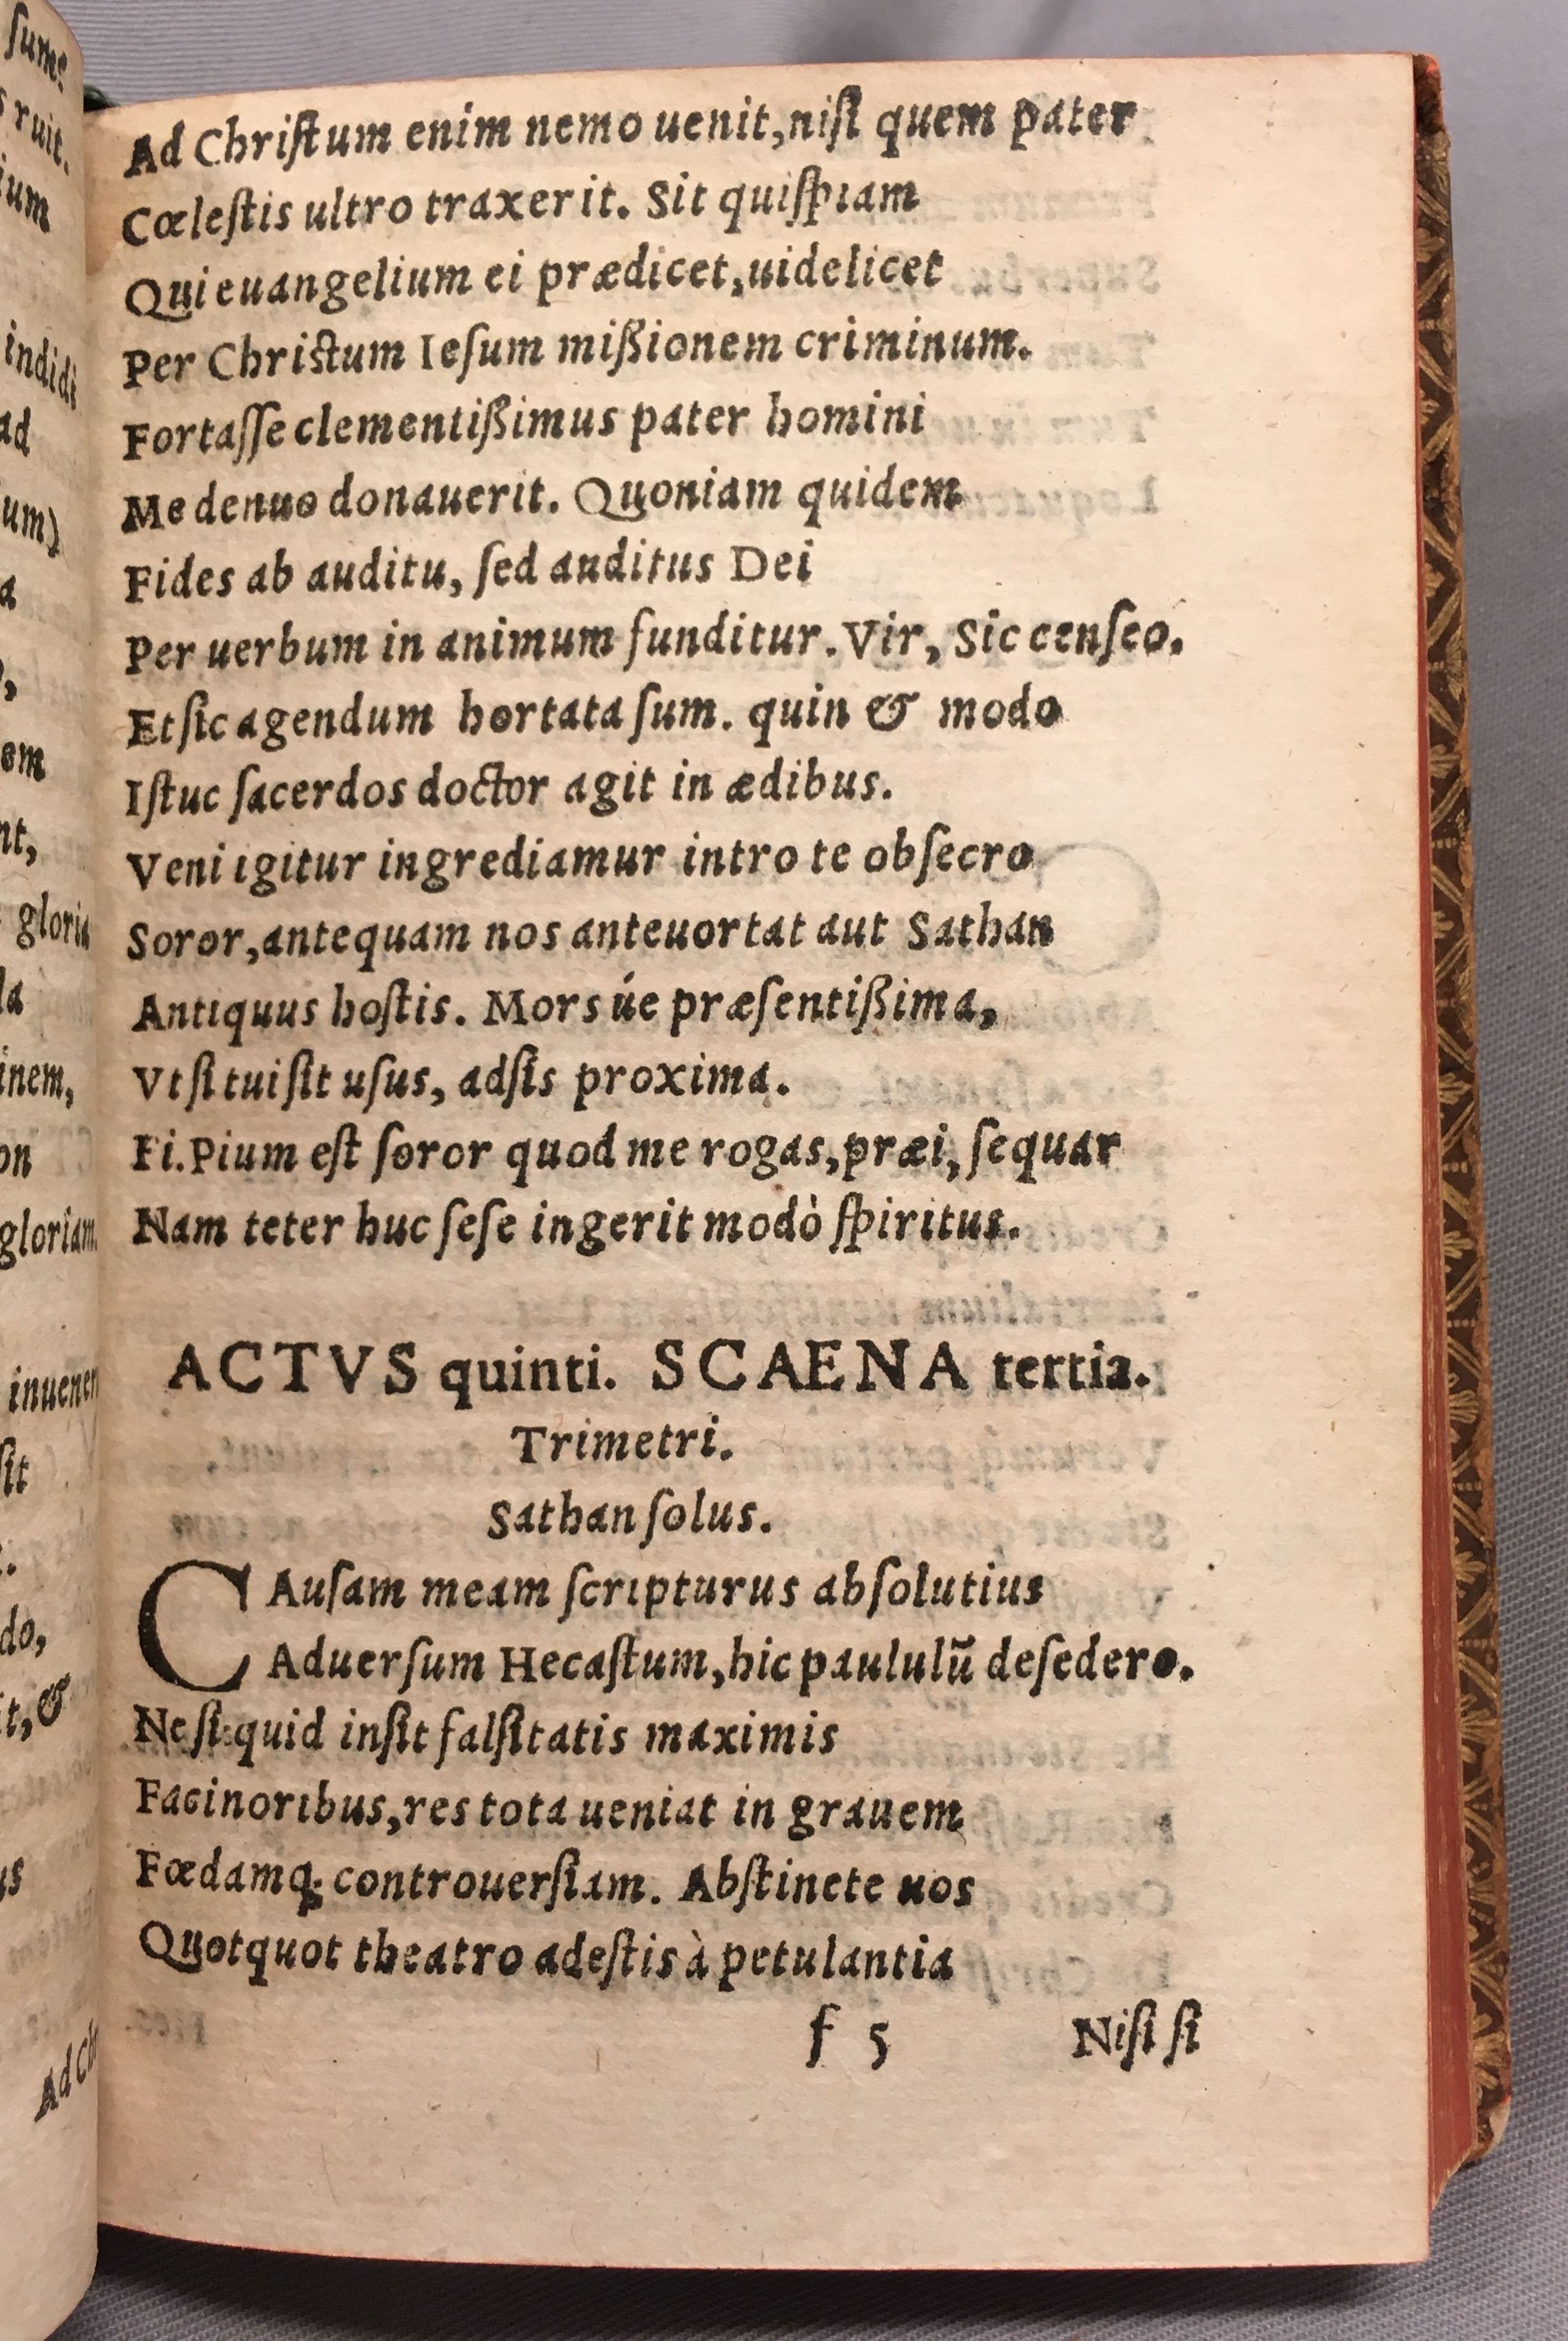 Ad Chriſtum enim nemo uenit,niſi quem pater
Cœleſtis ultro traxerit. Sit quiſpiam
Qui euangelium ei prædicet,uidelicet
Per Chriſtum Ieſum mißionem criminum.
Fortaſſe clementißimus pater homini
Me denuo donauerit. Quoniam quidem
Fides ab auditu, ſed auditus Dei
Per uerbum in animum funditur. Vir, Sic cenſeo.
Et ſic agendum hortata ſum. quin & modo
Iſtuc ſacerdos doctor agit in ædibus.
Veni igitur ingrediamur intro te obſecro
Soror,antequam nos anteuortat aut Sathan
Antiquus hoſtis. Mors úe præſentißima,
Vt ſi tui ſit uſus, adſis proxima.
Fi. Pium eſt ſoror quod me rogas,præi, ſequar
Nam teter huc ſeſe ingerit modò ſpiritus.
ACTVS quinti. SCAENA tertia.
Trimetri.
Sathan ſolus.
CAuſam meam ſcripturus abſolutius
Aduerſum Hecaſtum,hic paululũ deſedero.
Ne ſi quid inſit falſitatis maximis
Facinoribus,res tota ueniat in grauem
Fœdamq; controuerſiam. Abſtinete uos
Quotquot theatro adeſtis à petulantia
f 5 Niſi ſi
ſume
ruit.
ium
indidi
ad
um)
a
em
nt,
gloria
la
inem,
on
gloriam.
inuenen
ſit
do,
t,&
us
Ad Ch